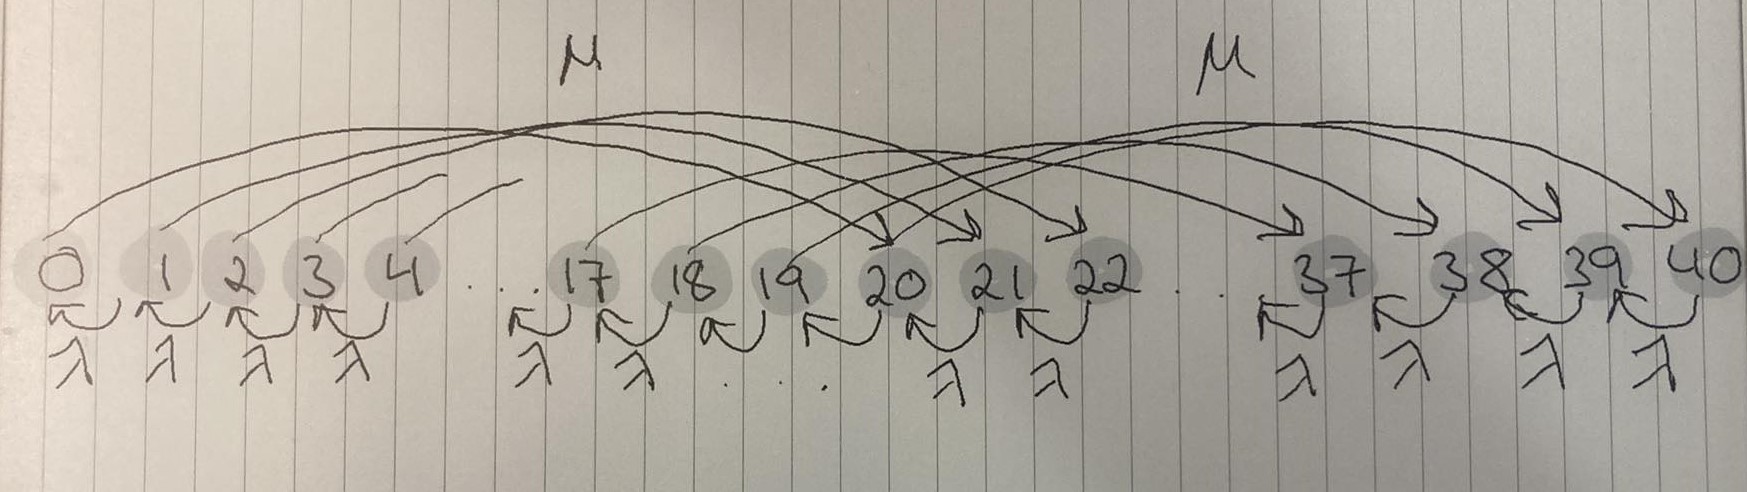 μ μ
0 1 2 3 4 . . . 17 18 19 20 21 22 . . . 37 38 39 40
λ λ λ λ λ λ . . . λ λ λ λ λ λ